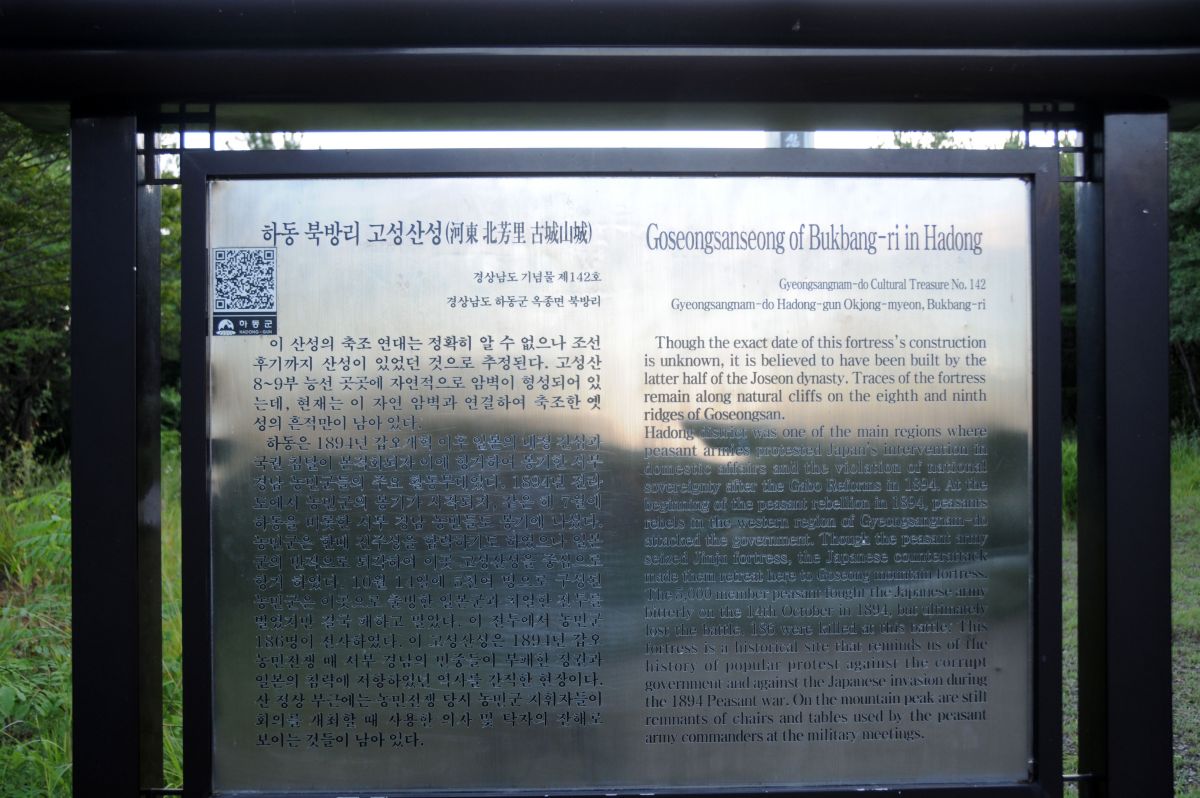 하동 북방리 고성산성(河東 北芳里 古城山城)
경상남도 기념물 제142호
경상남도 하동군 옥종면 북방리
하동군
HADONG-GUN
이 산성의 축조 연대는 정확히 알 수 없으나 조선
후기까지 산성이 있었던 것으로 추정된다. 고성산
8~9부 능선 곳곳에 자연적으로 암벽이 형성되어 있
는데, 현재는 이 자연 암벽과 연결하여 축조한 옛
성의 흔적만이 남아 있다.
하동은 1894년 갑오개혁 이후 일본의 내정 간섭과
국권 침탈이 본격화되자 이에 항거하여 봉기한 서부
경남 농민군들의 주요 활동무대였다. 1894년 전라
도에서 농민군의 봉기가 시작되자, 같은 해 7월에
하동을 비롯한 서부 경남 농민들도 봉기에 나섰다.
농민군은 한때 진주성을 함락하기도 하였으나 일본
군의 반격으로 퇴각하여 이곳 고성산성을 중심으로
항거 하였다. 10월 14일에 5천여 명으로 구성된
농민군은 이곳으로 출병한 일본군과 치열한 전투를
벌였지만 결국 패하고 말았다. 이 전투에서 농민군
186명이 전사하였다. 이 고성산성은 1894년 갑오
농민전쟁 때 서부 경남의 민중들이 부패한 정권과
일본의 침략에 저항하였던 역사를 간직한 현장이다.
산 정상 부근에는 농민전쟁 당시 농민군 지휘자들이
회의를 개최할 때 사용한 의자 및 탁자의 잔해로
보이는 것들이 남아 있다.
Goseongsanseong of Bukbang-ri in Hadong
Gyeongsangnam-do Cultural Treasure No. 142
Gyeongsangnam-do Hadong-gun Okjong-myeon, Bukbang-ri
Though the exact date of this fortress's construction
is unknown, it is believed to have been built by the
latter half of the Joseon dynasty. Traces of the fortress
remain along natural cliffs on the eighth and ninth
ridges of Goseongsan.
Hadong district was one of the main regions where
peasant armies protested Japan's intervention in
domestic affairs and the violation of national
sovereignty after the Gabo Reforms in 1894. At the
beginning of the peasant rebellion in 1894, peasants
rebels in the western region of Gyeongsangnam-do
attacked the government. Though the peasant army
seized Jinju fortress, the Japanese counterattack
made them retreat here to Goseong mountain fortress.
The 5,000 member peasant fought the Japanese army
bitterly on the 14th October in 1894, but ultimately
lost the battle. 186 were killed at this battle. This
fortress is a historical site that reminds us of the
history of popular protest against the corrupt
government and against the Japanese invasion during
the 1894 Peasant war. On the mountain peak are still
remnants of chairs and tables used by the peasant
army commanders at the military meetings.